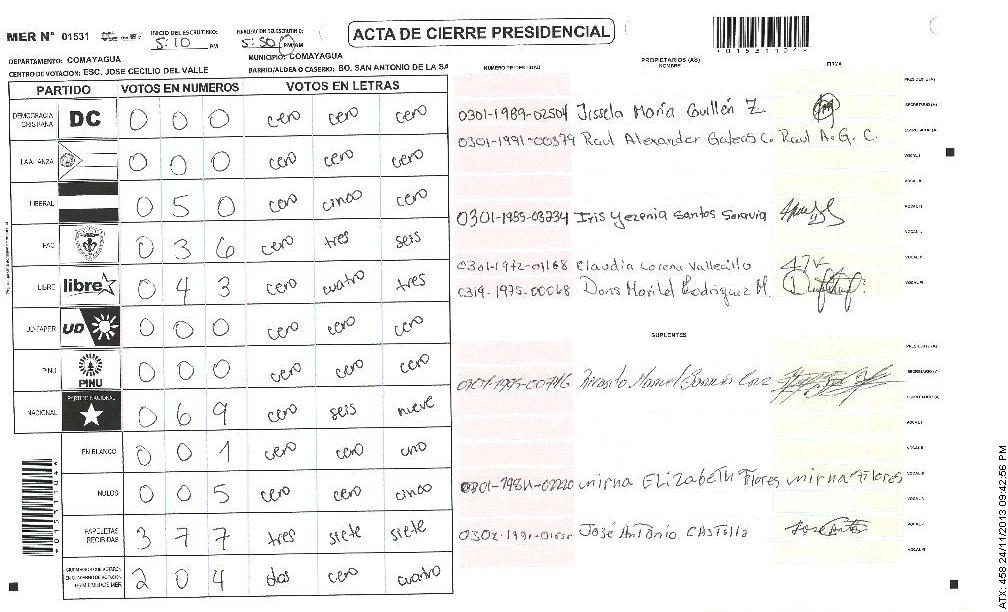 MER N° 01531
INICIO DEL ESCRUTINIO: 5:10 PM
FINALIZACION DEL ESCRUTINIO: 5:50 PM/AM
ACTA DE CIERRE PRESIDENCIAL
DEPARTAMENTO: COMAYAGUA
MUNICIPIO: COMAYAGUA
CENTRO DE VOTACION: ESC. JOSE CECILIO DEL VALLE
BARRIO/ALDEA O CASERIO: BO. SAN ANTONIO DE LA SA
PARTIDO VOTOS EN NUMEROS VOTOS EN LETRAS
DEMOCRACIA CRISTIANA DC 0 0 0 cero cero cero
LA ALIANZA 0 0 0 cero cero cero
LIBERAL 0 5 0 cero cinco cero
PAC 0 3 6 cero tres seis
LIBRE libre 0 4 3 cero cuatro tres
UD-FAPER UD 0 0 0 cero cero cero
PINU PINU 0 0 0 cero cero cero
NACIONAL PARTIDO NACIONAL 0 6 9 cero seis nueve
EN BLANCO 0 0 1 cero cero uno
NULOS 0 0 5 cero cero cinco
PAPELETAS RECIBIDAS 3 7 7 tres siete siete
2 0 4 dos cero cuatro
NUMERO DE IDENTIDAD PROPIETARIOS (AS) NOMBRE FIRMA
PRESIDENTE (A)
SECRETARIO (A)
0301-1989-02504 Jissela María Guillén Z.
ESCRUTADOR (A)
0301-1991-00379 Raul Alexander Galeas C. Raul A. G. C.
VOCAL I
VOCAL II
VOCAL III
0301-1985-03234 Iris Yezenia Santos Saravia
VOCAL IV
VOCAL V
0301-1972-01168 Claudia Lorena Vallecillo
VOCAL VI
0319-1975-00068 Doris Maribel Rodriguez M.
SUPLENTES
PRESIDENTE (A)
SECRETARIO (A)
ESCRUTADOR (A)
VOCAL I
VOCAL II
VOCAL III
mirna Elizabeth Flores mirna Flores
VOCAL IV
VOCAL V
José Antonio Castillo
VOCAL VI
ATX: 458 24/11/2013 09:42:56 PM